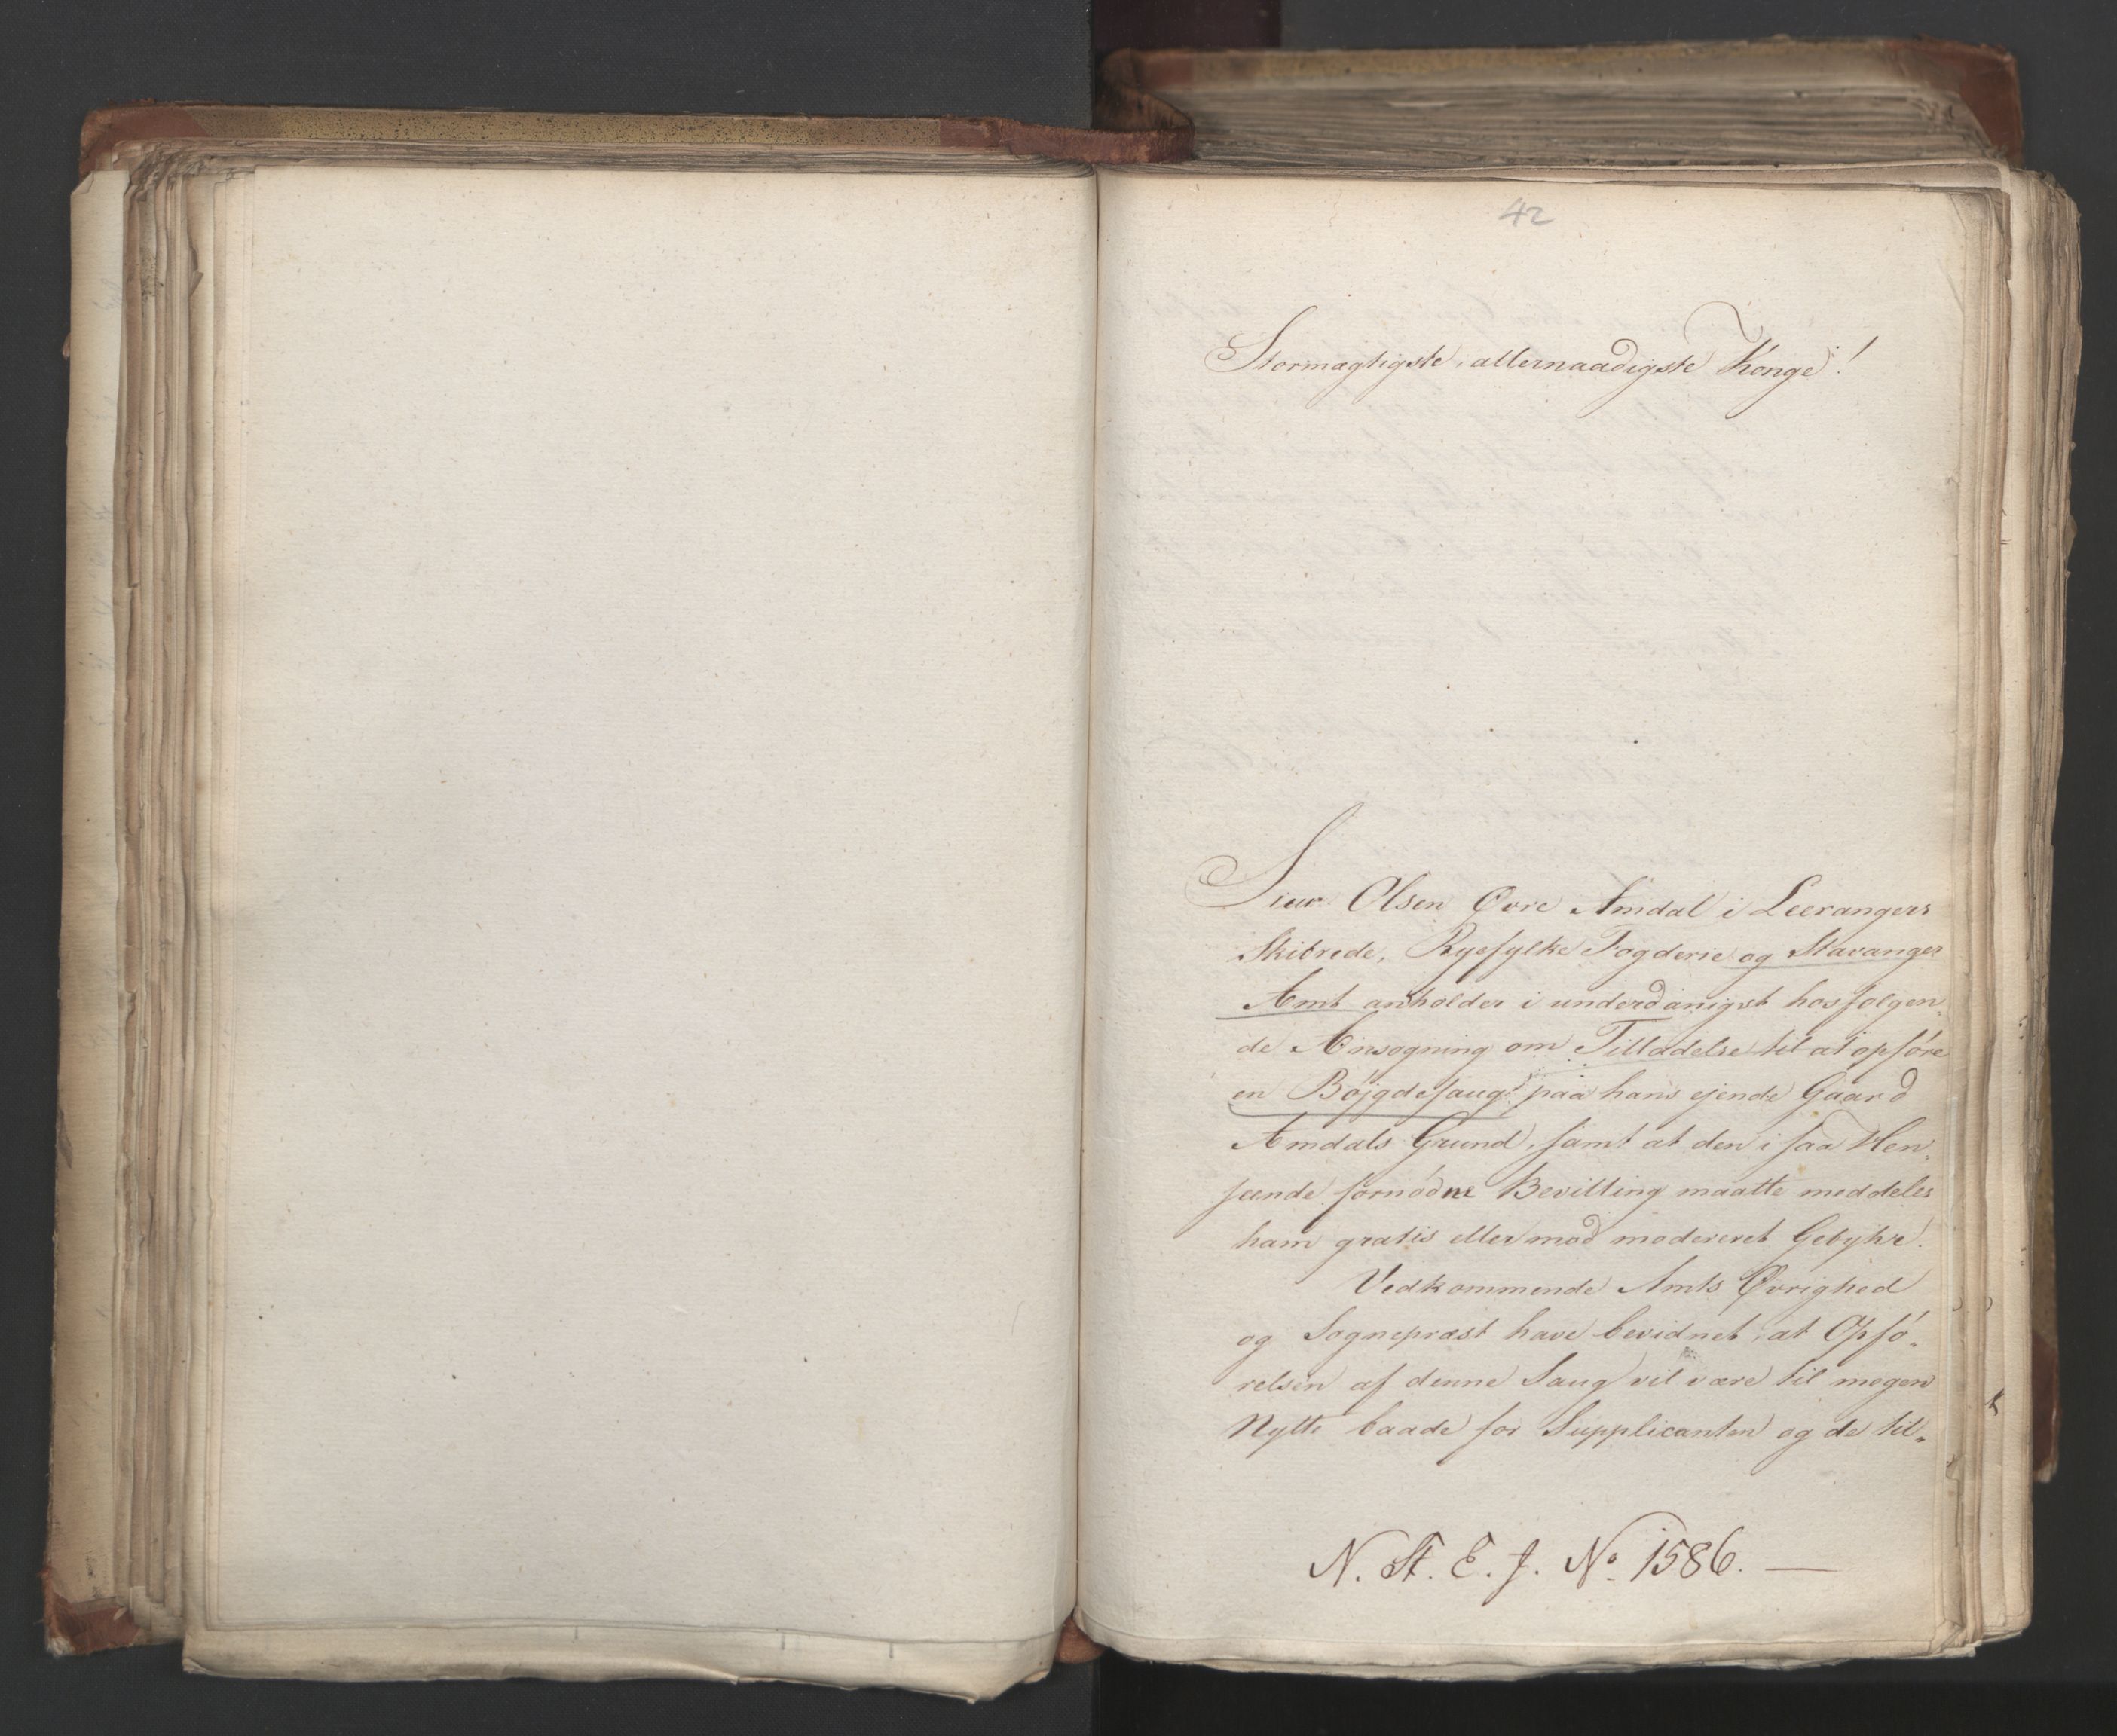 42
Stormægtigste, allernaadigste Konge!
Siur Olsen Øvre Amdal i Leerangers
Skibrede, Ryefylke Fogderie og Stavanger
Amt anholder i underdanigst hosfølgen„
de Ansøgning om Tilladelse til at opføre
en Bøjgdesaug paa hans ejende Gaard
Amdals Grund, samt at den i saa Hen„
seende fornødne Bevilling maatte meddeles
ham gratis eller mod modereret Gebyhr.
Vedkommende Amts Øvrighed
og Sognepræst have bevidnet, at Opfø„
relsen af denne Saug vil være til megen
Nytte baade for Supplicanten og de til„
N. St. E. J. No. 1586. —